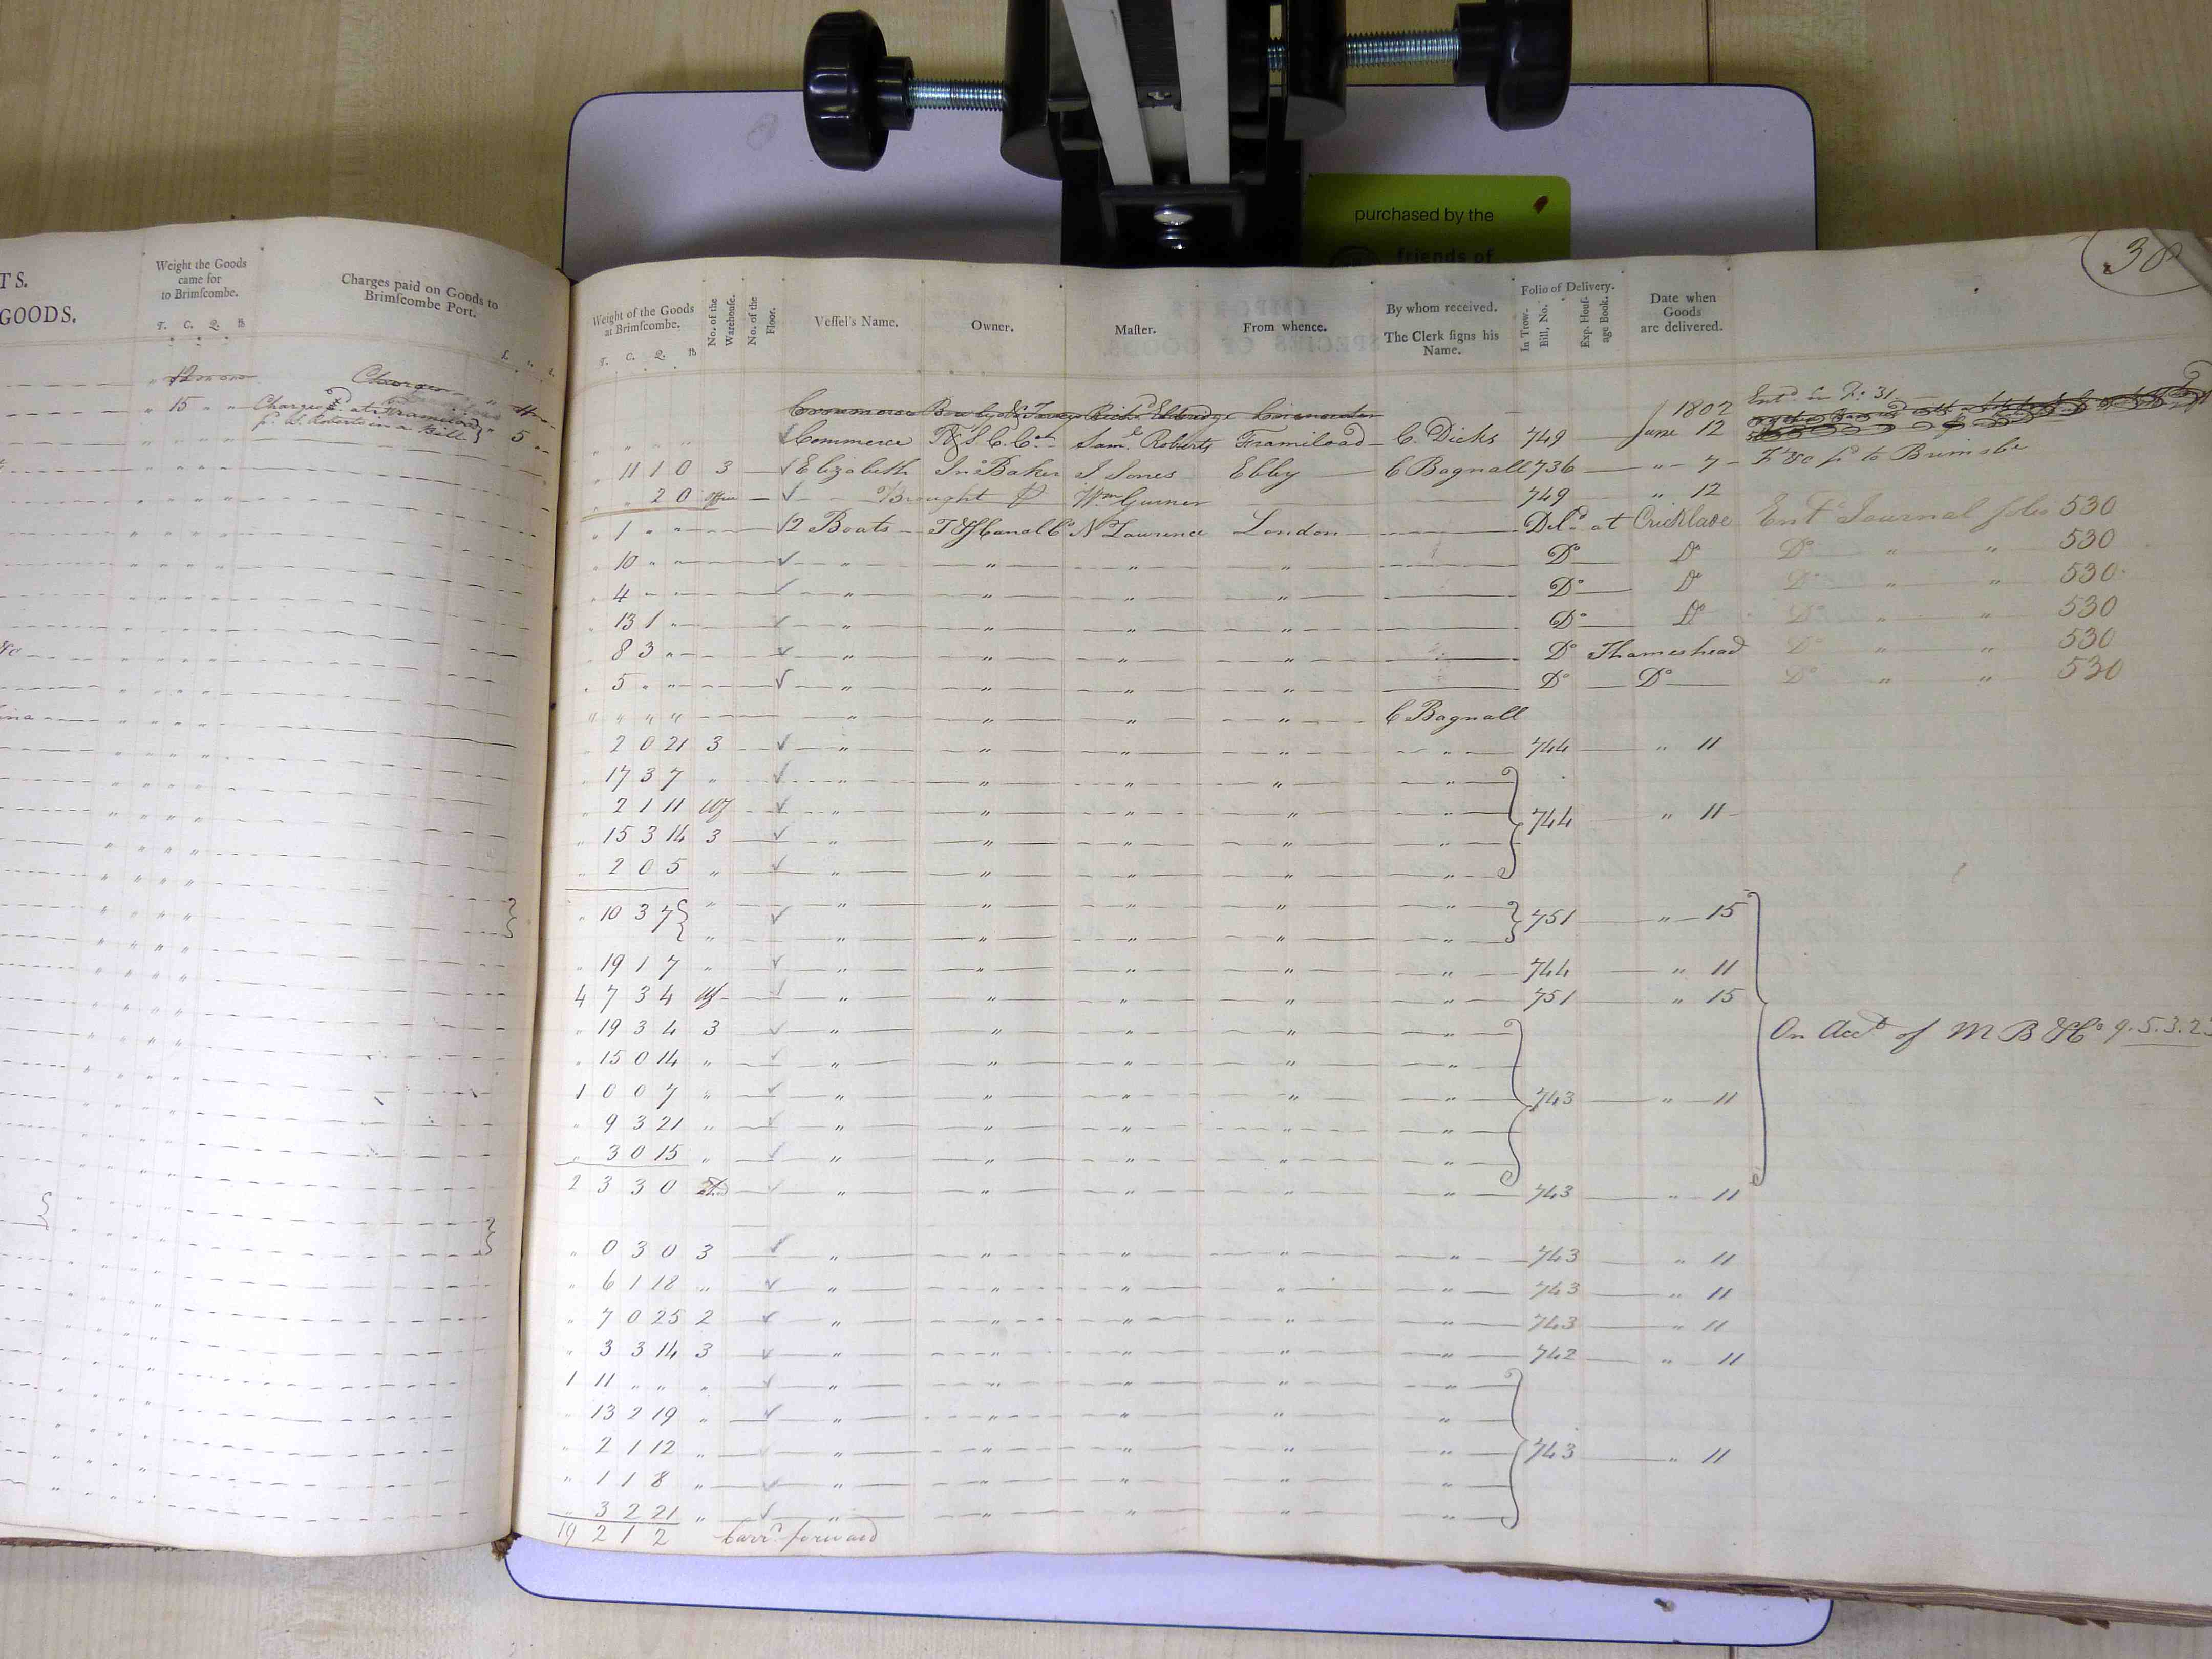 purchased by the
friends of
30
TS.
GOODS.
Weight the Goods
came for
to Brimſcombe.
T. C. Q. lb
Charges paid on Goods to
Brimſcombe Port.
Charges
" 15 " " Charges at Framiload
pr. S. Roberts in a Bill } 5 "
Weight of the Goods
at Brimſcombe.
T. C. Q. lb
No. of the
Warehouſe.
No. of the
Floor.
Veſſel's Name.
Owner.
Maſter.
From whence.
By whom received.
The Clerk ſigns his
Name.
Folio of Delivery.
In Trow-
Bill, No.
Exp. Houſ-
age Book.
Date when
Goods
are delivered.
Commerce
1802 Entd in Fo: 31
√ Commerce T&S C. Co. Saml. Roberts Framiload C. Dicks 749 June 12
" 11 1 0 3 √ Elizabeth Jno Baker J. Jones Ebby C Bagnall 736 " 7
" " 2 0 office √ Brought Wm. Gurner 749 " 12
" 1 " " √ 12 Boats T&S Canal Co N Lawrence London Deld. at Cricklade Ent Journal folio 530
" 10 " " √ " " " " Do Do Do " " 530
" 4 " " √ " " " " Do Do Do " " 530
" 13 1 " √ " " " " Do Do Do " " 530
" 8 3 " √ " " " " Do Thameshead Do " " 530
" 5 " " √ " " " " Do Do Do " " 530
" " " " " " " " C Bagnall
" 2 0 21 3 √ " " " " " 744 " 11
" 17 3 7 " √ " " " " "
" 2 1 11 Wf √ " " " " " 744 " 11
" 15 3 14 3 √ " " " " "
" 2 0 5 " √ " " " " "
" 10 3 7 } " √ " " " " " } 751 " 15
" " " " " "
" 19 1 7 " √ " " " " " 744 " 11
4 7 3 4 Wf √ " " " " " 751 " 15
" 19 3 4 3 √ " " " " " On Acct of M B & Co 9.5.3.23
" 15 0 14 " √ " " " " "
1 0 0 7 " √ " " " " " 743 " 11
" 9 3 21 " √ " " " " "
" 3 0 15 " √ " " " " "
2 3 3 0 √ " " " " " 743 " 11
" 0 3 0 3 √ " " " " " 743 " 11
" 6 1 18 " √ " " " " " 743 " 11
" 7 0 25 2 √ " " " " " 743 " 11
" 3 3 14 3 √ " " " " " 742 " 11
1 11 " " " √ " " " " "
" 13 2 19 " √ " " " " "
" 2 1 12 " " " " " " 743 " 11
" 1 1 8 " √ " " " " "
" 3 2 21 " √ " " " " "
19 2 1 2 Carrd. forward